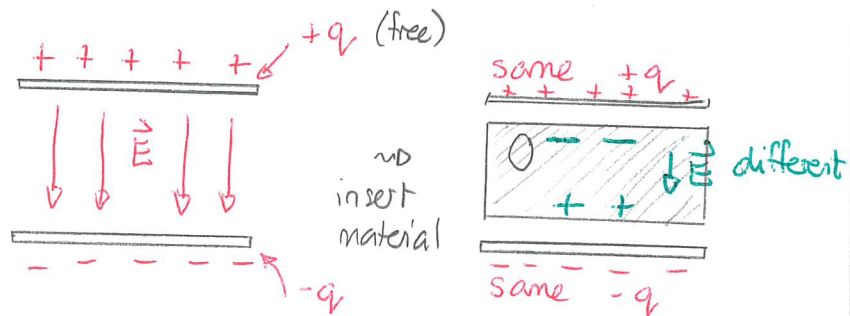 +q (free)
+ + + + +
E
- - - - -
-q
~D
insert
material
same +q
+ + + + +
- -
E different
+ +
- - - - - -
same -q